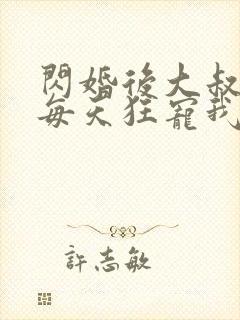 閃婚後大叔
每天狂寵我
許志敏